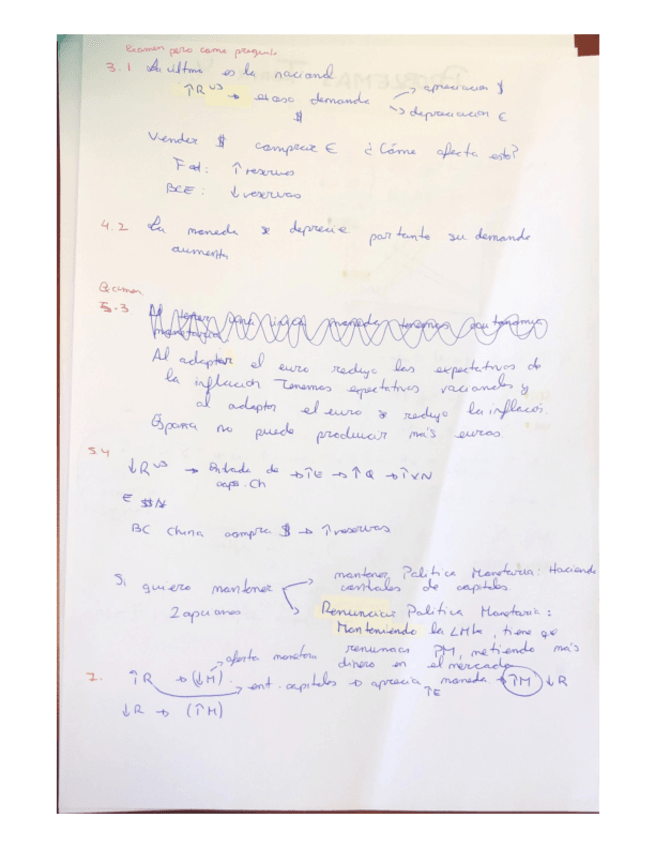 Examen pero como pregunta
3.1 La última es la nacional
↑R US → exceso demanda → apreciación $
$ → depreciación €
Vender $ comprar € ¿Cómo afecta esto?
Fed: ↑ reservas
BCE: ↓ reservas
4.2 La moneda se deprecie por tanto su demanda
aumenta
Examen
5.3 Al tener una única moneda tenemos autonomía
monetaria
Al adoptar el euro redujo las expectativas de
la inflación Tenemos expectativas racionales y
al adoptar el euro se redujo la inflación.
España no puede producir más euros.
5.4
↓R US → Entrada de → ↑E → ↑Q → ↑XN
cap. Ch
BC China compra $ → ↑ reservas
Si quiero mantener → mantener Política Monetaria: Haciendo
controles de capitales.
2 opciones → Renunciar Política Monetaria:
Manteniendo la LMk, tiene que
renunciar PM, metiendo más
dinero en el mercado
oferta monetaria
7. ↑R → (↓M). ent. capitales → aprecia moneda → ↑M ↓R
↑E
↓R → (↑M)